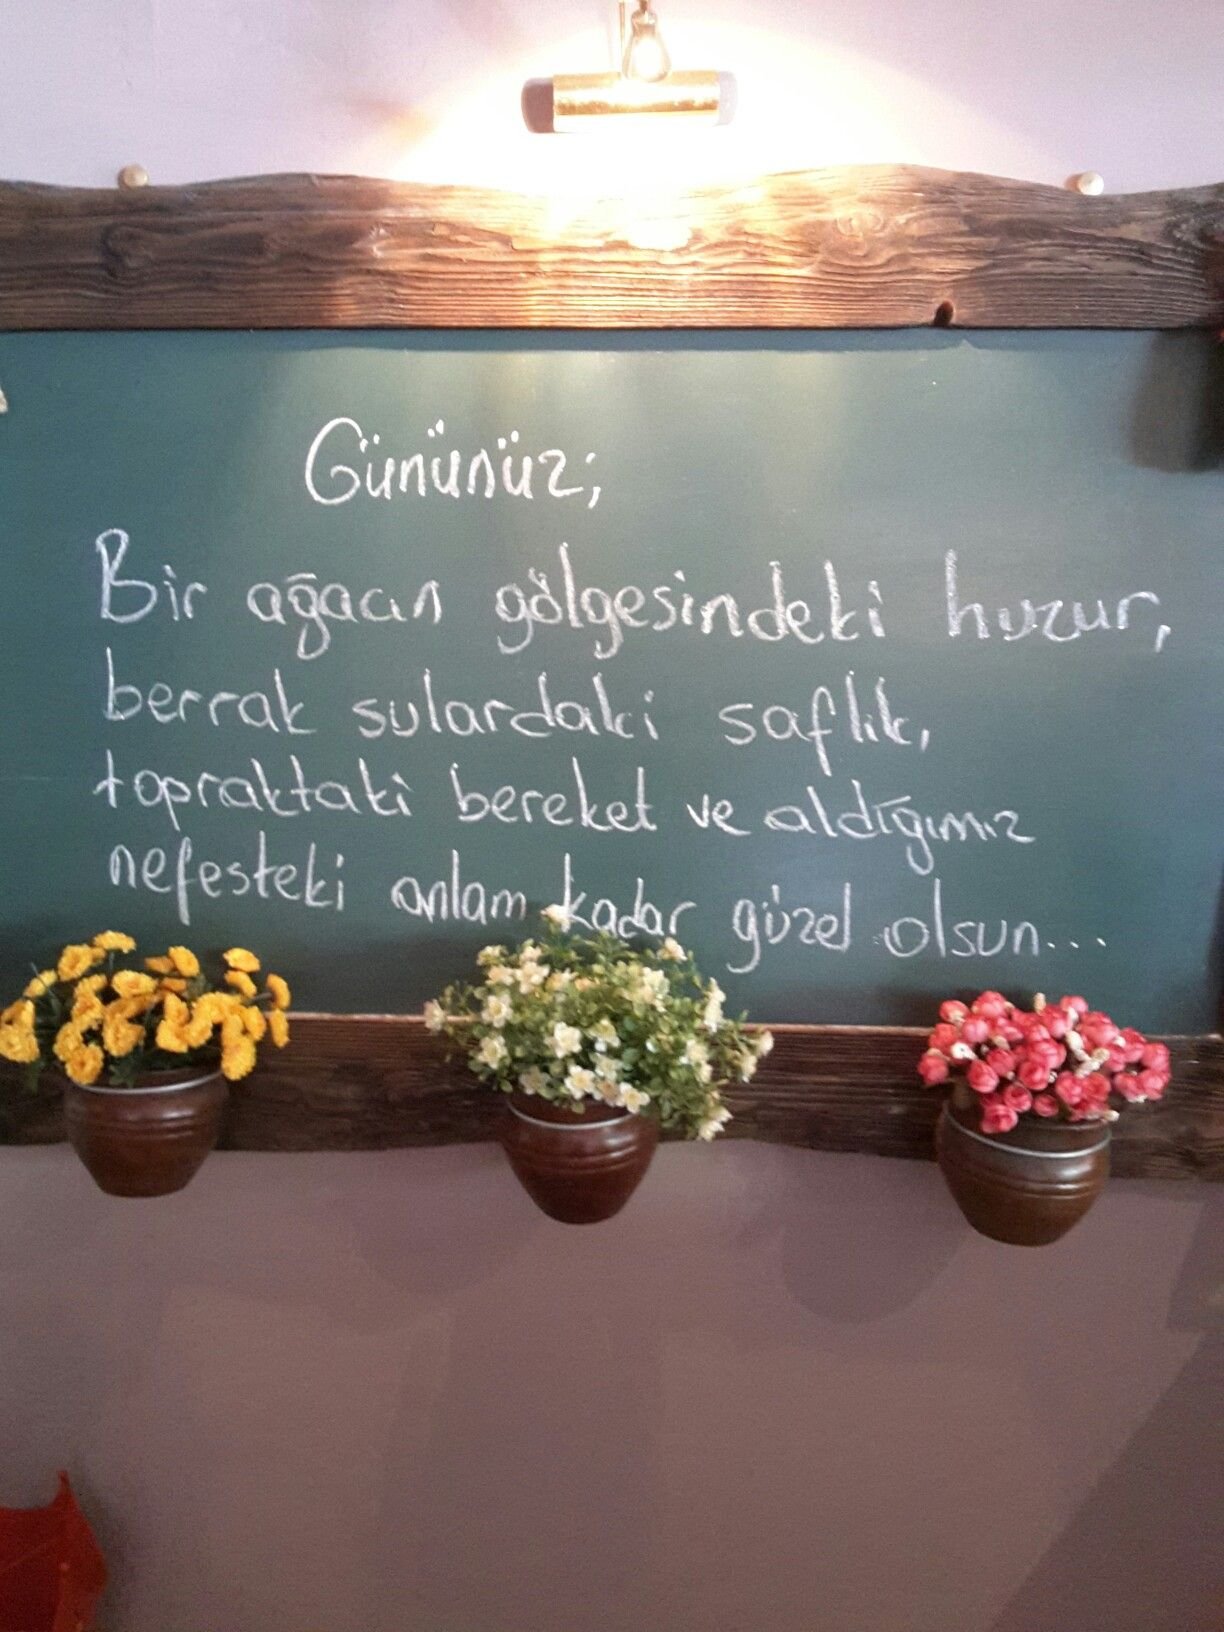 Gününüz;
Bir ağacın gölgesindeki huzur,
berrak sulardaki saflık,
topraktaki bereket ve aldığımız
nefesteki anlam kadar güzel olsun...